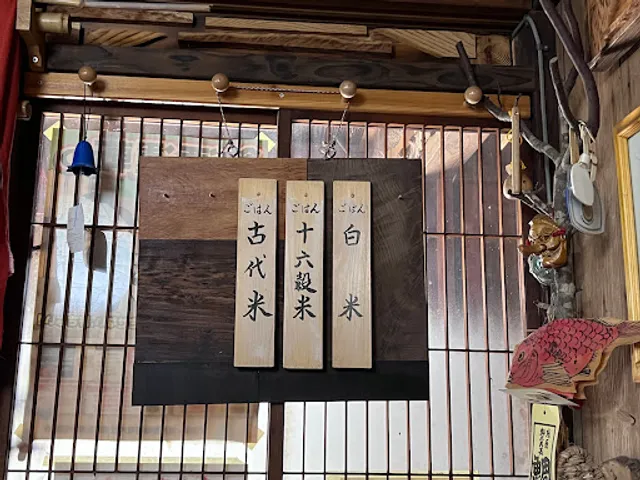 ごはん
白米
ごはん
十六穀米
ごはん
古代米